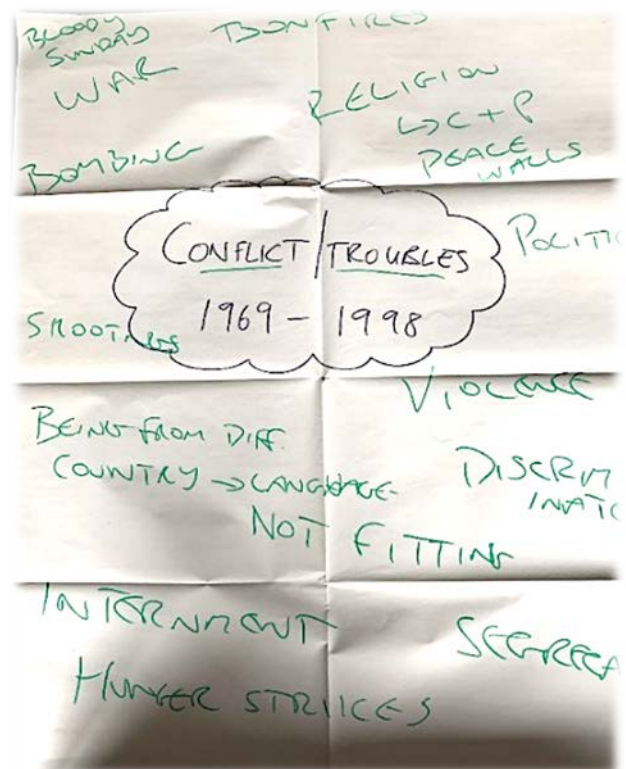 BLOODY
SUNDAY
BONFIRES
WAR
RELIGION
↳ C + P
PEACE
WALLS
BOMBING
CONFLICT / TROUBLES
1969 - 1998
POLITI
SHOOTINGS
VIOLENCE
BEING FROM DIFF.
COUNTRY → LANGUAGE
NOT FITTING
DISCRIM
INATIO
INTERNMENT
SEGREGA
HUNGER STRIKES